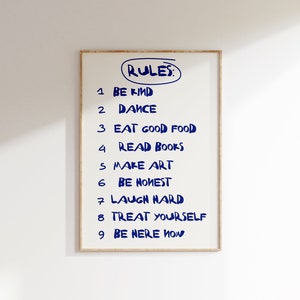 RULES:
1 BE KIND
2 DANCE
3 EAT GOOD FOOD
4 READ BOOKS
5 MAKE ART
6 BE HONEST
7 LAUGH HARD
8 TREAT YOURSELF
9 BE HERE NOW